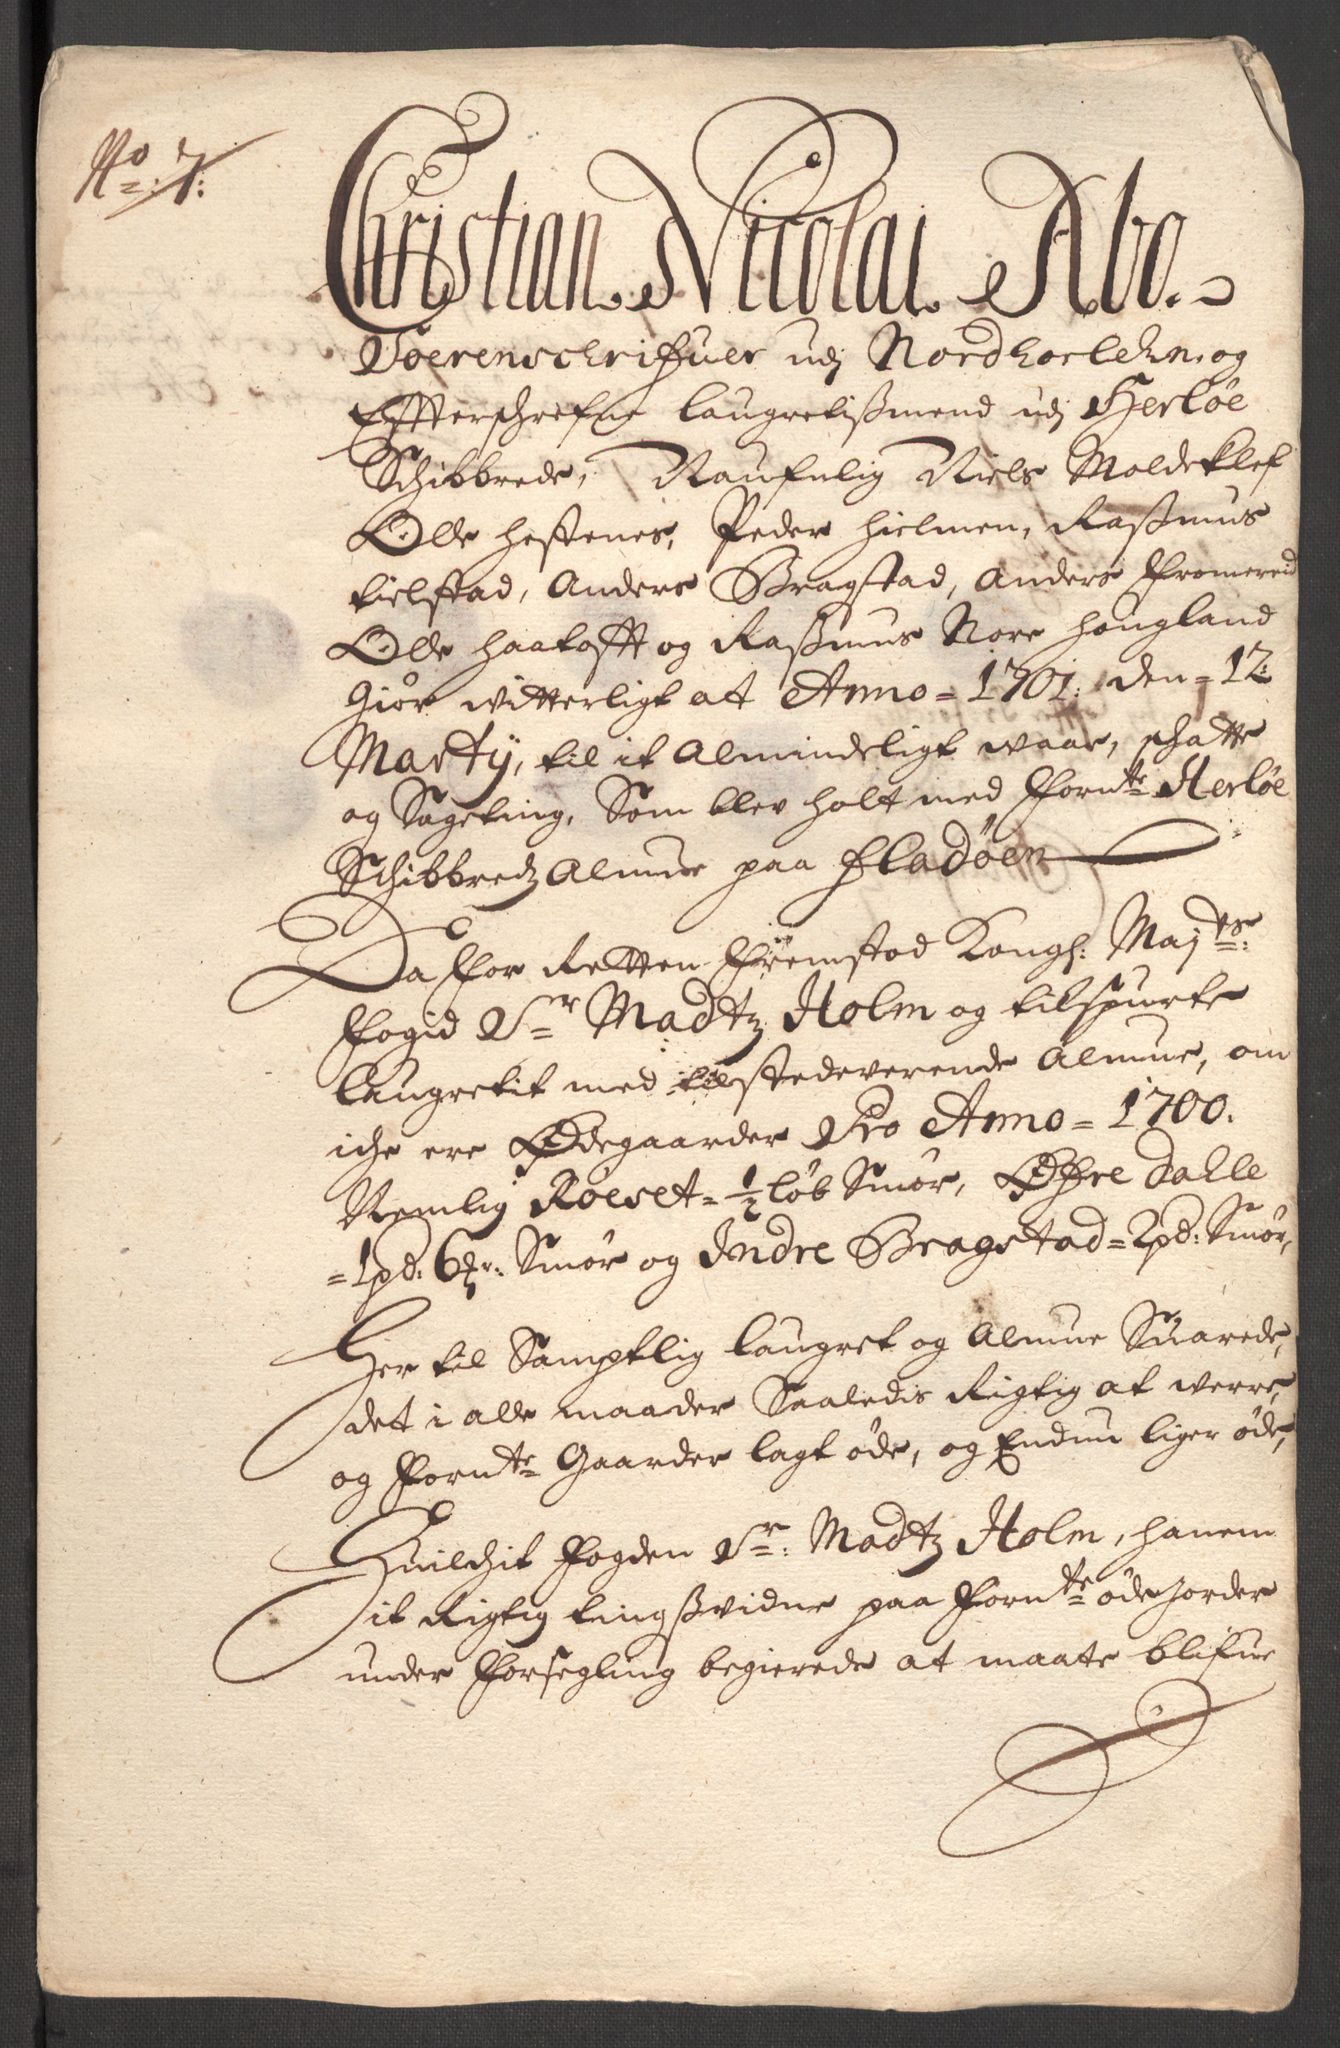 No: 7:
Christian Nicolai Abo.
Soerenschrifuer udj Nordhorlehn, og
Effterschrefne laugretißmend udj Herløe
Schibbrede, Naufnlig Niels Moldeklef
Olle hestenes, Peder hielmen, Raßmus
kielstad, Anders Bragstad, Anders Fromereid
Olle haatofft og Raßmus Nore hougland
Giør witterligt at Anno = 1701: den = 12:
Martij, til it Almindeligt waar, schatte
og Sageting, Som blev holt med fornte Herløe
Schibbredz Almue paa fladøen
Da for Retten fremstod Kongl: Majts:
fogid Sr Madtz Holm og tilspurte
laugretit med tilstedeverende Almue, om
iche ere Ødegaarder Pro Anno = 1700.
Nemlig Roeset = ½ løb Smør, Øfre dalle
= 1 pd: 6 mr: Smør og Indre Bragstad = 2 pd: Smør,
Her til Samptlig laugret og Almue Suarede,
det i alle maader Saaledis Rigtig at werre,
og fornte Gaarder lagt øde, og Endnu liger øde,
Huilchit fogden Sr: Madtz Holm, hanem
it Rigtig tingßvidne paa fornte øde Jorder
under forsegling begierede at maate blifue